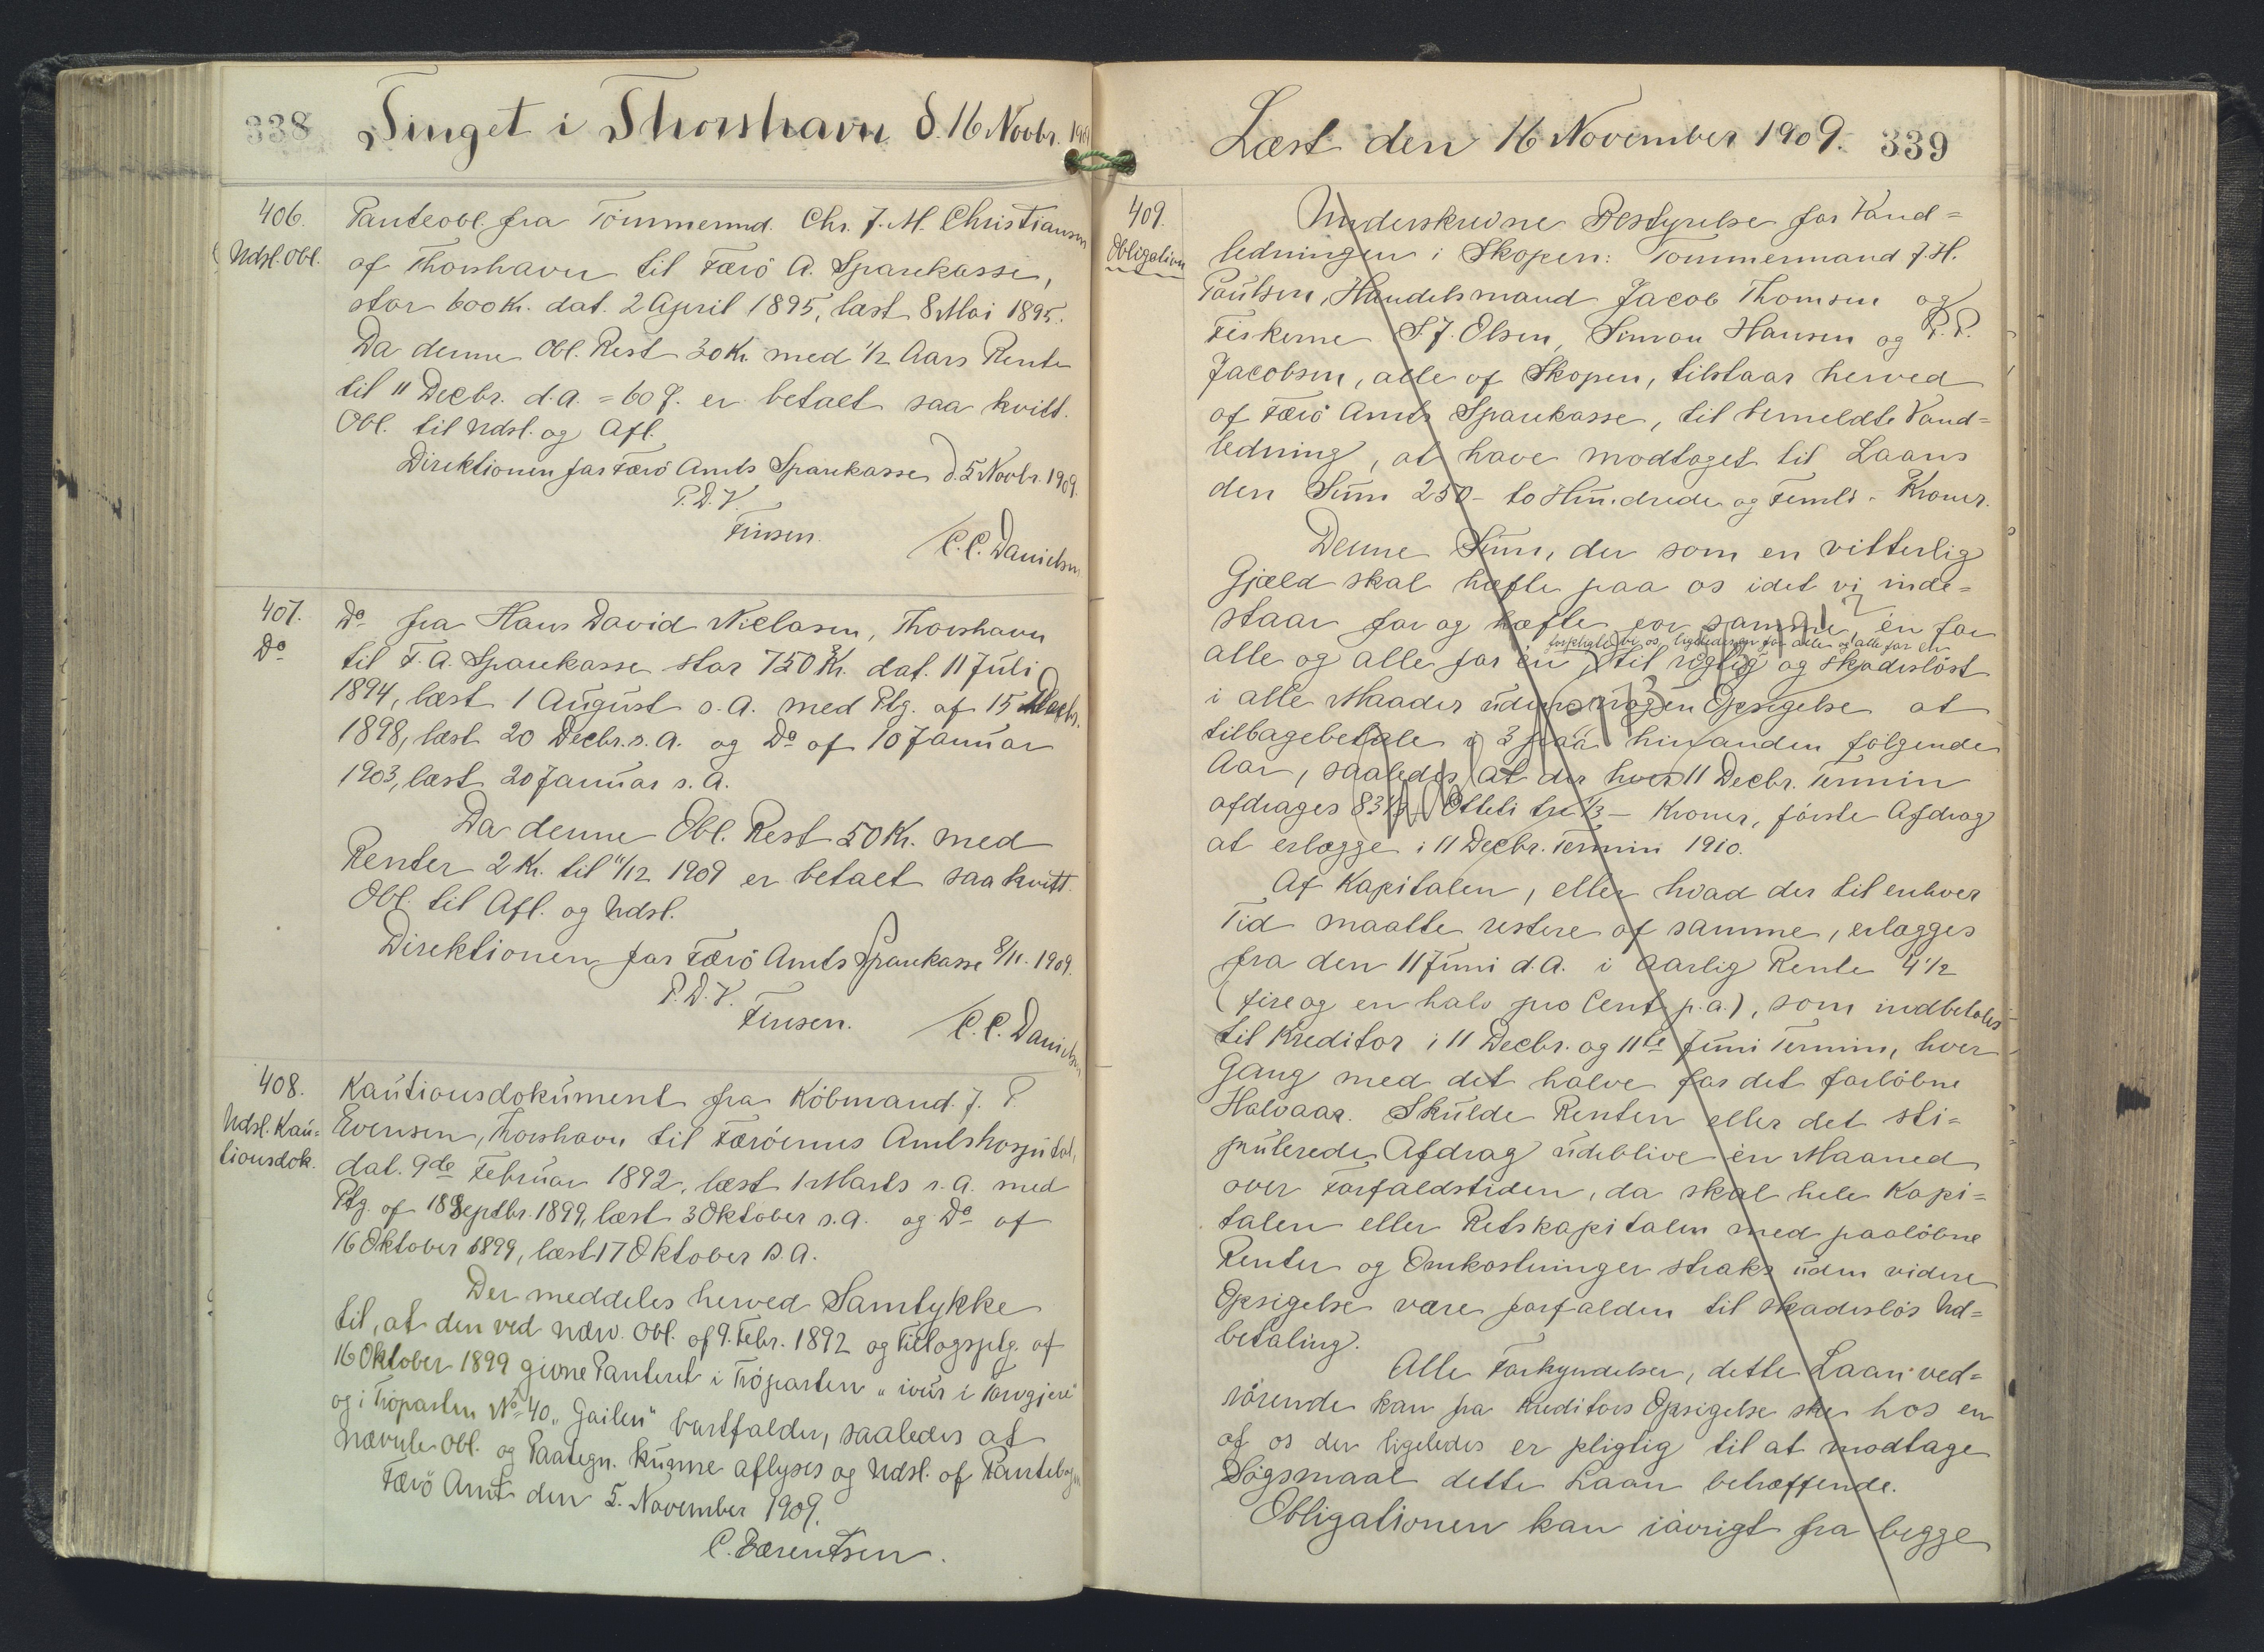 338 Tinget i Thorshavn d. 16 Novbr. 1909
406.
Udsl. Obl.
Panteobl. fra Tömmermd. Chr. J. M. Christiansen
af Thorshavn til Færö A. Sparekasse,
stor 600 Kr. dat. 2 April 1895, læst 8 Mai 1895.
Da denne Obl. Rest 30 Kr. med 1/2 Aars Rente
til 11 Decbr. d.A. = 60 Ø. er betalt saa kvitt.
Obl. til Udsl. og Afl.
Direktionen for Færö Amts Sparekasse d. 5 Novbr. 1909.
P.D.V.
Finsen. C.C. Danielsen
407.
Do
Do fra Hans David Niclasen, Thorshavn
til F. A. Sparekasse stor 750 Kr. dat. 11 Juli
1894, læst 1 August s.A. med Ptg. af 15 Decbr.
1898, læst 20 Decbr. s.A. og Do af 10 Januar
1903, læst 20 Januar s.A.
Da denne Obl. Rest 50 Kr. med
Renter 2 Kr. til 11/12 1909 er betalt saa kvitt.
Obl. til Afl. og Udsl.
Direktionen for Færö Amts Sparekasse 8/11. 1909.
P.D.V.
Finsen. C.C. Danielsen
408.
Udsl. Kau=
tionsdok.
Kautionsdokument fra Köbmand J. P.
Evensen, Thorshavn til Færöernes Amtshospital,
dat. 9de Februar 1892, læst 1 Marts s.A. med
Ptg. af 18 Septbr. 1899, læst 3 Oktober s.A. og Do af
16 Oktober 1899, læst 17 Oktober s.A.
Der meddeles herved Samtykke
til, at den ved nævn. Obl. af 9. Febr. 1892 og Tillægsptg. af
16 Oktober 1899 givne Panteret i Tröparten
og i Tröparten No 40 bortfalder, saaledes at
nævnte Obl. og Paategn. kunne aflyses og Udsl. af Pantebogen
Færö Amt den 5. November 1909.
C. Bærentsen.
Læst den 16 November 1909. 339
409.
Obligation
Underskrevne Bestyrelse for Vand=
ledningen i Skopen: Tömmermand J. H.
Poulsen, Handelsmand Jacob Thomsen og
Fiskerne S. J. Olsen, Simon Hansen og P. P.
Jacobsen, alle af Skopen, tilstaar herved
af Færö Amts Sparekasse, til bemeldte Vand=
ledning, at have modtaget til Laans
den Sum 250 - to Hundrede og Femti - Kroner.
Denne Sum, der som en vitterlig
Gjæld skal hæfte paa os idet vi inde=
staar for og hæfte for samme, én for
forpligte vi os, ligeledes en for alle og alle for en
alle og alle for én til rigtig og skadeslöst
i alle Maader uden nogen Opsigelse at
tilbagebetale i 3 paa hinanden fölgende
Aar, saaledes at der hver 11 Decbr. Termin
afdrages 83 1/3 Otteti tre 1/3 - Kroner, förste Afdrag
at erlægge i 11 Decbr. Termin 1910.
Af Kapitalen, eller hvad der til enhver
Tid maatte restere af samme, erlægges
fra den 11 Juni d.A. i aarlig Rente 4 1/2
(fire og en halv pro Cent p.a.), som indbetales
til Kreditor i 11 Decbr. og 11te Juni Termin, hver
Gang med det halve for det forlöbne
Halvaar. Skulde Renten eller det sti=
pulerede Afdrag udeblive én Maaned
over Forfaldstiden, da skal hele Kapi=
talen eller Retskapitalen med paalöbne
Renter og Omkostninger straks uden videre
Opsigelse være forfalden til skadeslös Ud=
betaling.
Alle Forkyndelser, dette Laan ved=
rörende kan fra Kreditors Opsigelse ske hos en
af os der ligeledes er pligtig til at modtage
Sögsmaal dette Laan betræffende.
Obligationen kan iövrigt fra begge